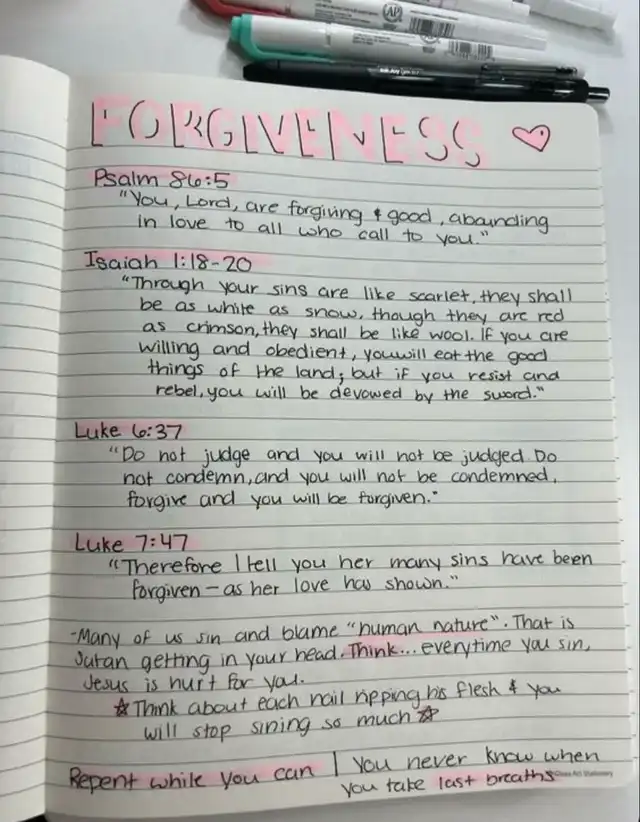 FORGIVENESS
Psalm 86:5
"You, Lord, are forgiving & good, abounding
in love to all who call to you."
Isaiah 1:18-20
"Through your sins are like scarlet, they shall
be as white as snow, though they are red
as crimson, they shall be like wool. If you are
willing and obedient, you will eat the good
things of the land; but if you resist and
rebel, you will be devowed by the sword."
Luke 6:37
"Do not judge and you will not be judged. Do
not condemn, and you will not be condemned,
forgive and you will be forgiven."
Luke 7:47
"Therefore I tell you her many sins have been
forgiven – as her love has shown."
-Many of us sin and blame "human nature". That is
Satan getting in your head. Think... everytime you sin,
Jesus is hurt for you.
☆Think about each nail ripping his flesh & you
will stop sining so much☆
Repent while you can | you never know when
you take last breaths